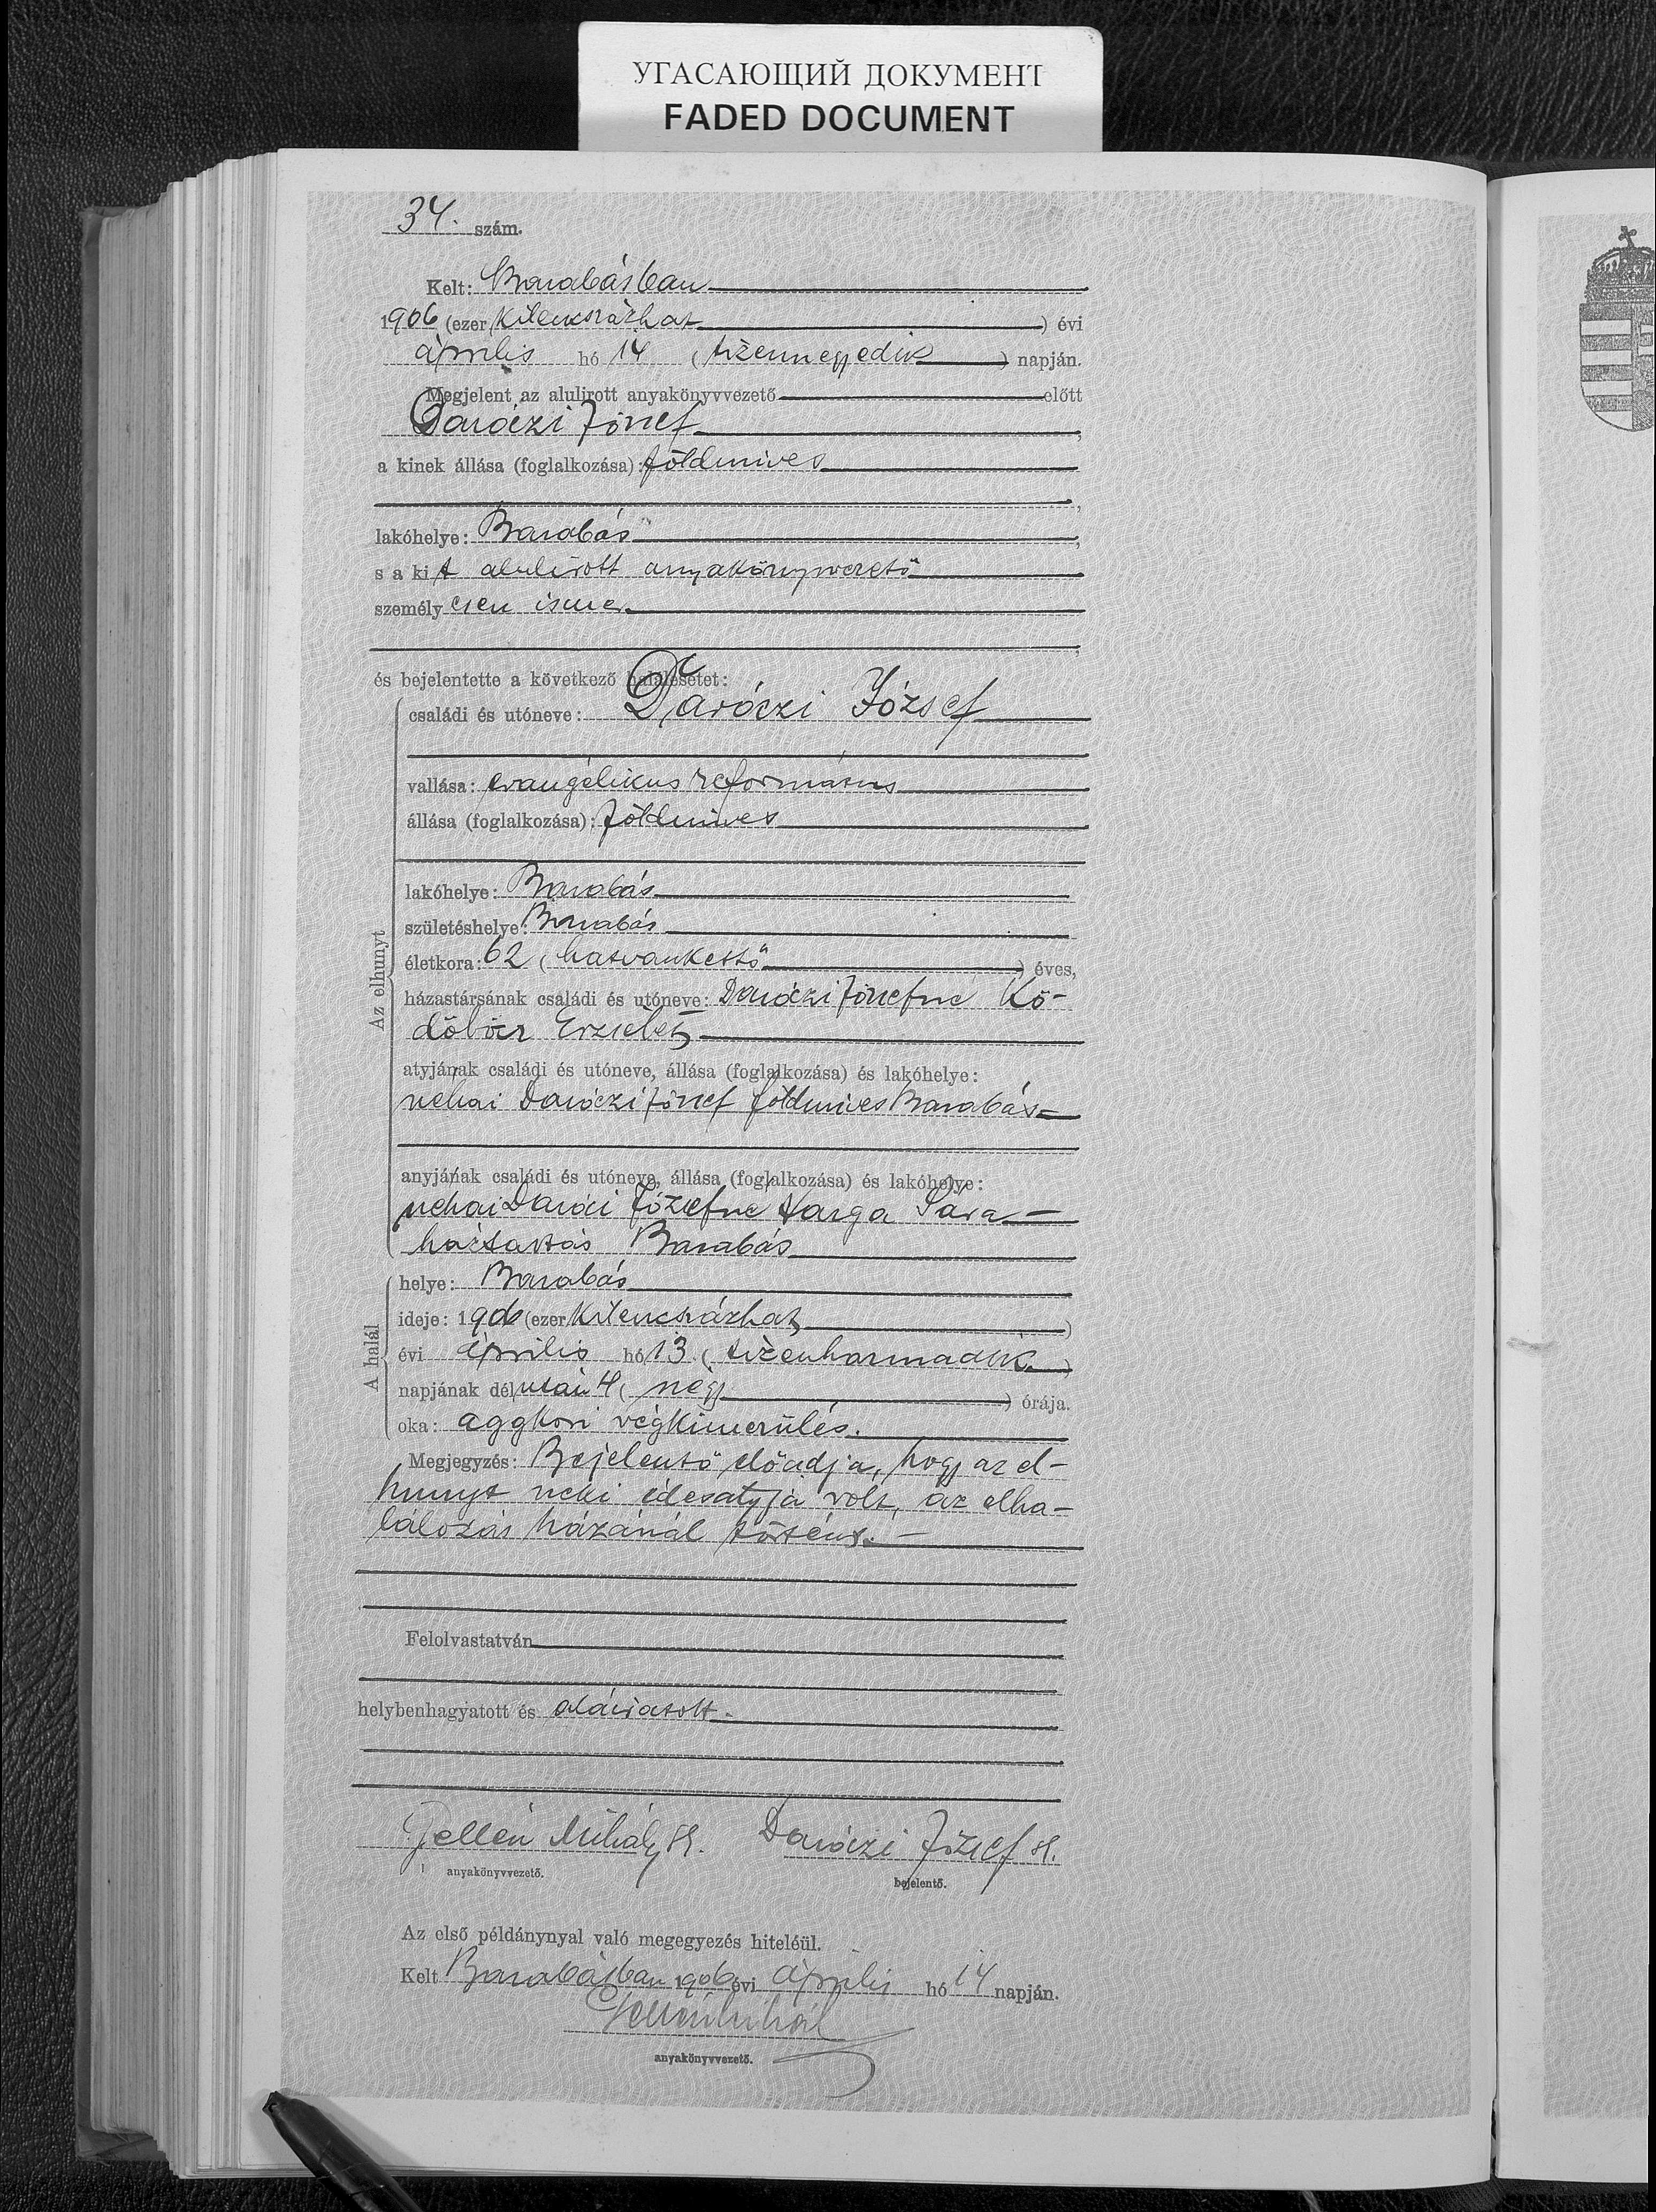 УГАСАЮЩИЙ ДОКУМЕНТ
FADED DOCUMENT
34. szám.
Kelt: Barabásban
1906 (ezer kilencszázhat) évi
április hó 14 (tizennegyedik) napján.
Megjelent az alulirott anyakönyvvezető előtt
Daróczi József,
a kinek állása (foglalkozása): földmives
lakóhelye: Barabás,
s a kit alulirott anyakönyvvezető
személyesen ismer
és bejelentette a következő halálesetet:
Az elhunyt
családi és utóneve: Daróczi József
vallása: evangélikus református
állása (foglalkozása): földmives
lakóhelye: Barabás
születéshelye: Barabás
életkora: 62 (hatvankettő) éves,
házastársának családi és utóneve: Daróczi Józsefné Kö-
döböcz Erzsébet
atyjának családi és utóneve, állása (foglalkozása) és lakóhelye:
néhai Daróczi József földmives Barabás
anyjának családi és utóneve, állása (foglalkozása) és lakóhelye:
néhai Daróci Józsefné Varga Sára
háztartás Barabás
A halál
helye: Barabás
ideje: 1906 (ezer kilencszázhat)
évi április hó 13. (tizenharmadik)
napjának délután 4 (négy) órája.
oka: aggkori végkimerülés.
Megjegyzés: Bejelentő előadja, hogy az el-
hunyt neki édesatyja volt, az elha-
lálozás házánál történt.
Felolvastatván
helybenhagyatott és aláiratott.
Gellén Mihály sk. Daróczi József sk.
anyakönyvvezető. bejelentő.
Az első példánynyal való megegyezés hiteléül.
Kelt Barabásban 1906 évi április hó 14 napján.
Gellén Mihály
anyakönyvvezető.